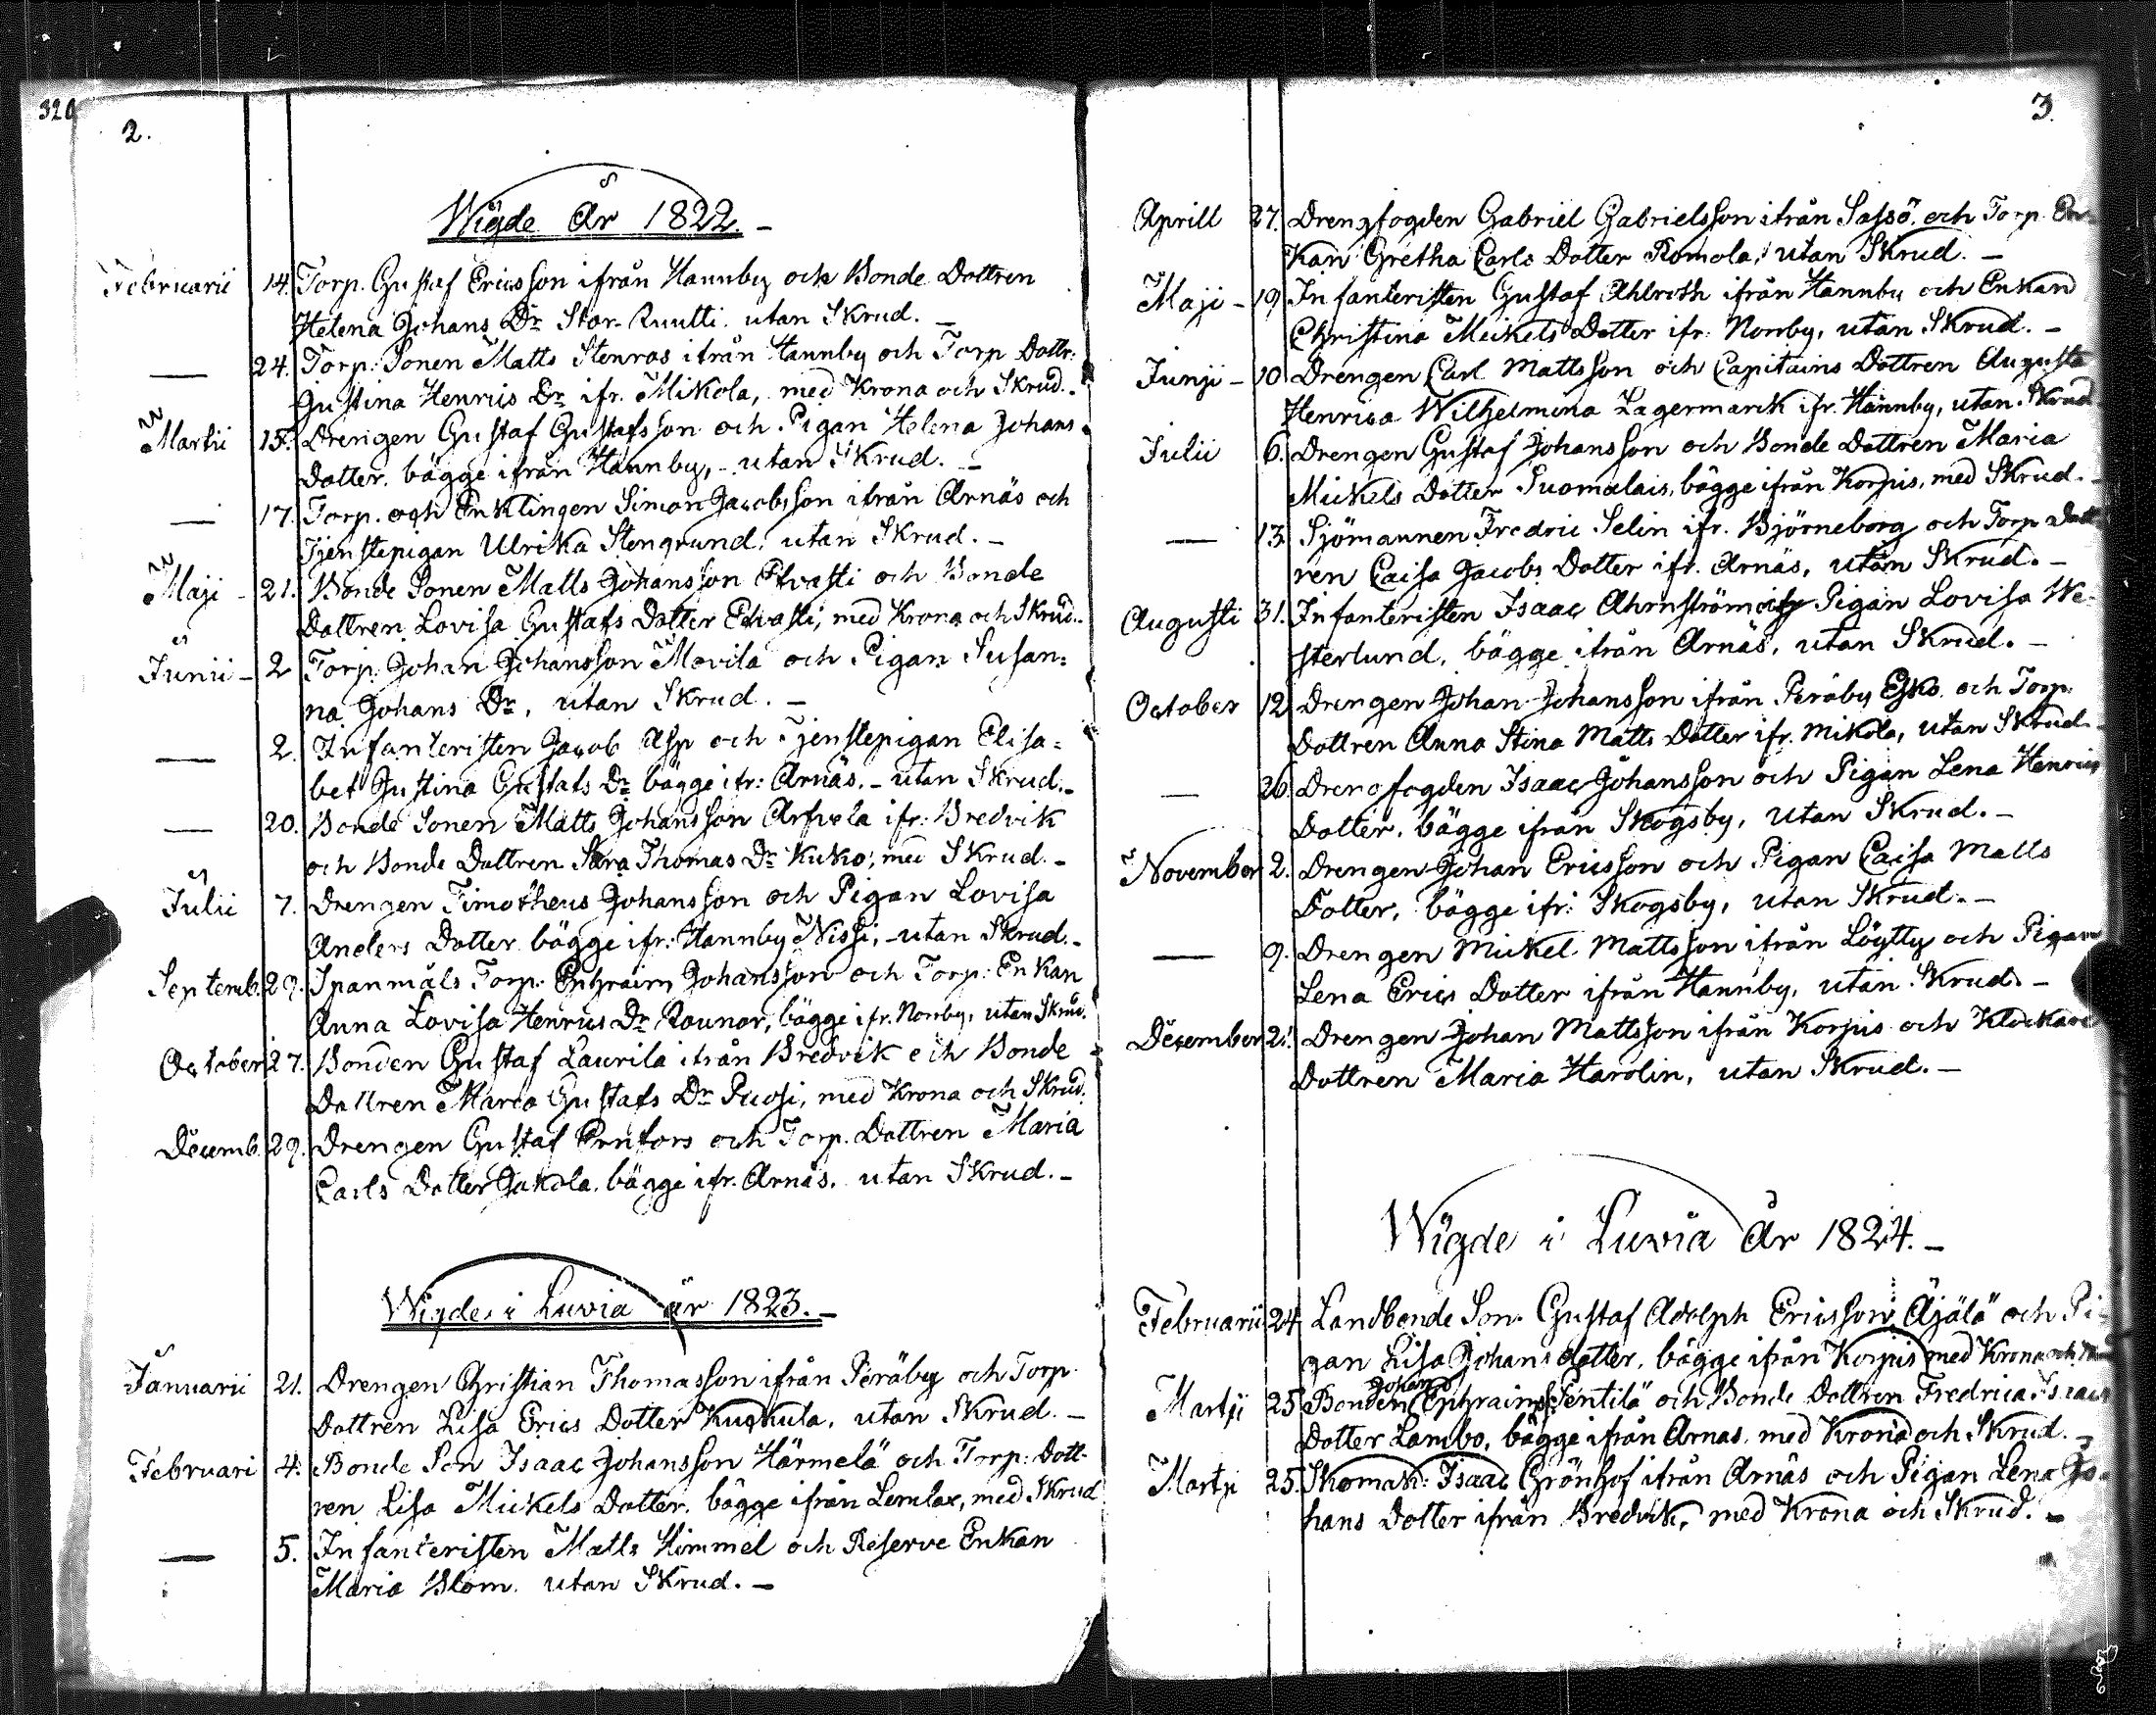 320
2.
Wigde År 1822. -
Februarii 14. Torp. Gustaf Ericsson ifrån Hannby och Bonde Dottren
Helena Johans Dr Stor-Ruutti. utan Skrud. -
— 24. Torp: Sonen Matts Stenros ifrån Hannby och Torp Dottr:
Justina Henrics Dr ifr. Mikola, med Krona och Skrud. -
Martii 15. Drengen Gustaf Gustafsson och Pigan Helena Johans
Dotter. bägge ifrån Hannby, - utan Skrud. -
— 17. Torp. och Enklingen Simon Jacobsson ifrån Arnäs och
Tjenstepigan Ulrika Stengrund, utan Skrud. -
Maji - 21. Bonde Sonen Matts Johansson och Bonde
Dottren Lovisa Gustafs Dotter med Krona och Skrud. -
Junii - 2 Torp: Johan Johansson Movila och Pigan Susan=
na Johans Dr, utan Skrud. -
— 2. Infanteristen Jacob Asp och Tjenstepigan Elisa=
bet Justina Gustafs Dr bägge ifr: Arnäs. - utan Skrud. -
— 20. Bonde Sonen Matts Johansson Arfvela ifr: Bredvik
och Bonde Dottren Sara Thomas Dr Kuko, med Skrud. -
Julii 7. Drengen Timotheus Johansson och Pigan Lovisa
Anders Dotter bägge ifr: Hannby Nissi, - utan Skrud. -
Septemb. 29. Spanmåls Torp. Ephraim Johansson och Torp: Enkan
Anna Lovisa Henrics Dr Rounor, bägge ifr. Norrby, utan Skrud.
October 27. Bonden Gustaf Laurila ifrån Bredvik och Bonde
Dottren Maria Gustafs Dr Puosi, med Krona och Skrud.
Decemb. 29. Drengen Gustaf Ernfors och Torp. Dottren Maria
Carls Dotter Jakola. bägge ifr. Arnäs. utan Skrud. -
Wigde i Luvia år 1823. -
Januarii 21. Drengen Christian Thomasson ifrån Peräby och Torp.
Dottren Lisa Erics Dotter utan Skrud. -
Februari 4. Bonde Son Isaac Johansson Härmelä och Torp: Dott-
ren Lisa Mickels Dotter. bägge ifrån Lemlax, med Skrud
— 5. Infanteristen Matts Himmel och Reserve Enkan
Maria Blom. utan Skrud. -
3.
Aprill 27. Drengfogden Gabriel Gabrielsson ifrån Sassö. och Torp. En-
kan Gretha Carls Dotter Romola, utan Skrud. -
Maji - 19 Infanteristen Gustaf Ahlroth ifrån Hannby och Enkan
Christina Mickels Dotter ifr: Norrby, utan Skrud. -
Junji - 10 Drengen Carl Mattsson och Capitains Dottren Augusta
Henrica Wilhelmina Lagermarck ifr. Hannby, utan Skrud
Julii 6. Drengen Gustaf Johansson och Bonde Dottren Maria
Mickels Dotter Suomalais, bägge ifrån Korpis, med Skrud. -
— 13. Sjömannen Fredric Selin ifr. Björneborg och Torp Dott
ren Caisa Jacobs Dotter ifr. Arnäs, utan Skrud. -
Augusti 31. Infanteristen Isaac Ahrnström och Pigan Lovisa We-
sterlund, bägge ifrån Arnäs, utan Skrud. -
October 12 Drengen Johan Johansson ifrån Peräby Esko. och Torp.
Dottren Anna Stina Matts Dotter ifr. Mikola, utan Skrud. -
— 26. Drengfogden Isaac Johansson och Pigan Lena Henrics
Dotter, bägge ifrån Skogsby, utan Skrud. -
November 2. Drengen Johan Ericsson och Pigan Caisa Matts
Dotter, bägge ifr: Skogsby, utan Skrud. -
— 9. Drengen Mickel Mattsson ifrån Löytty och Pigan
Lena Erics Dotter ifrån Hannby, utan Skrud. -
December 21. Drengen Johan Mattsson ifrån Korpis och Klockare
Dottren Maria Harolin, utan Skrud. -
Wigde i Luvia År 1824. -
Februarii 24. Landbonde Son. Gustaf Adolph Ericsson Äjälä och Pi-
gan Lisa Johans dotter, bägge ifrån Korpis med Krona och
Johans
Martji 25 Bonden Ephraim Pentilä och Bonde Dottren Fredrica Isaacs
Dotter Lambo, bägge ifrån Arnas, med Krona och Skrud. -
Martji 25. Skomak: Isaac Grönhof ifrån Arnäs och Pigan Lena Jo-
hans Dotter ifrån Bredvik, med Krona och Skrud. -